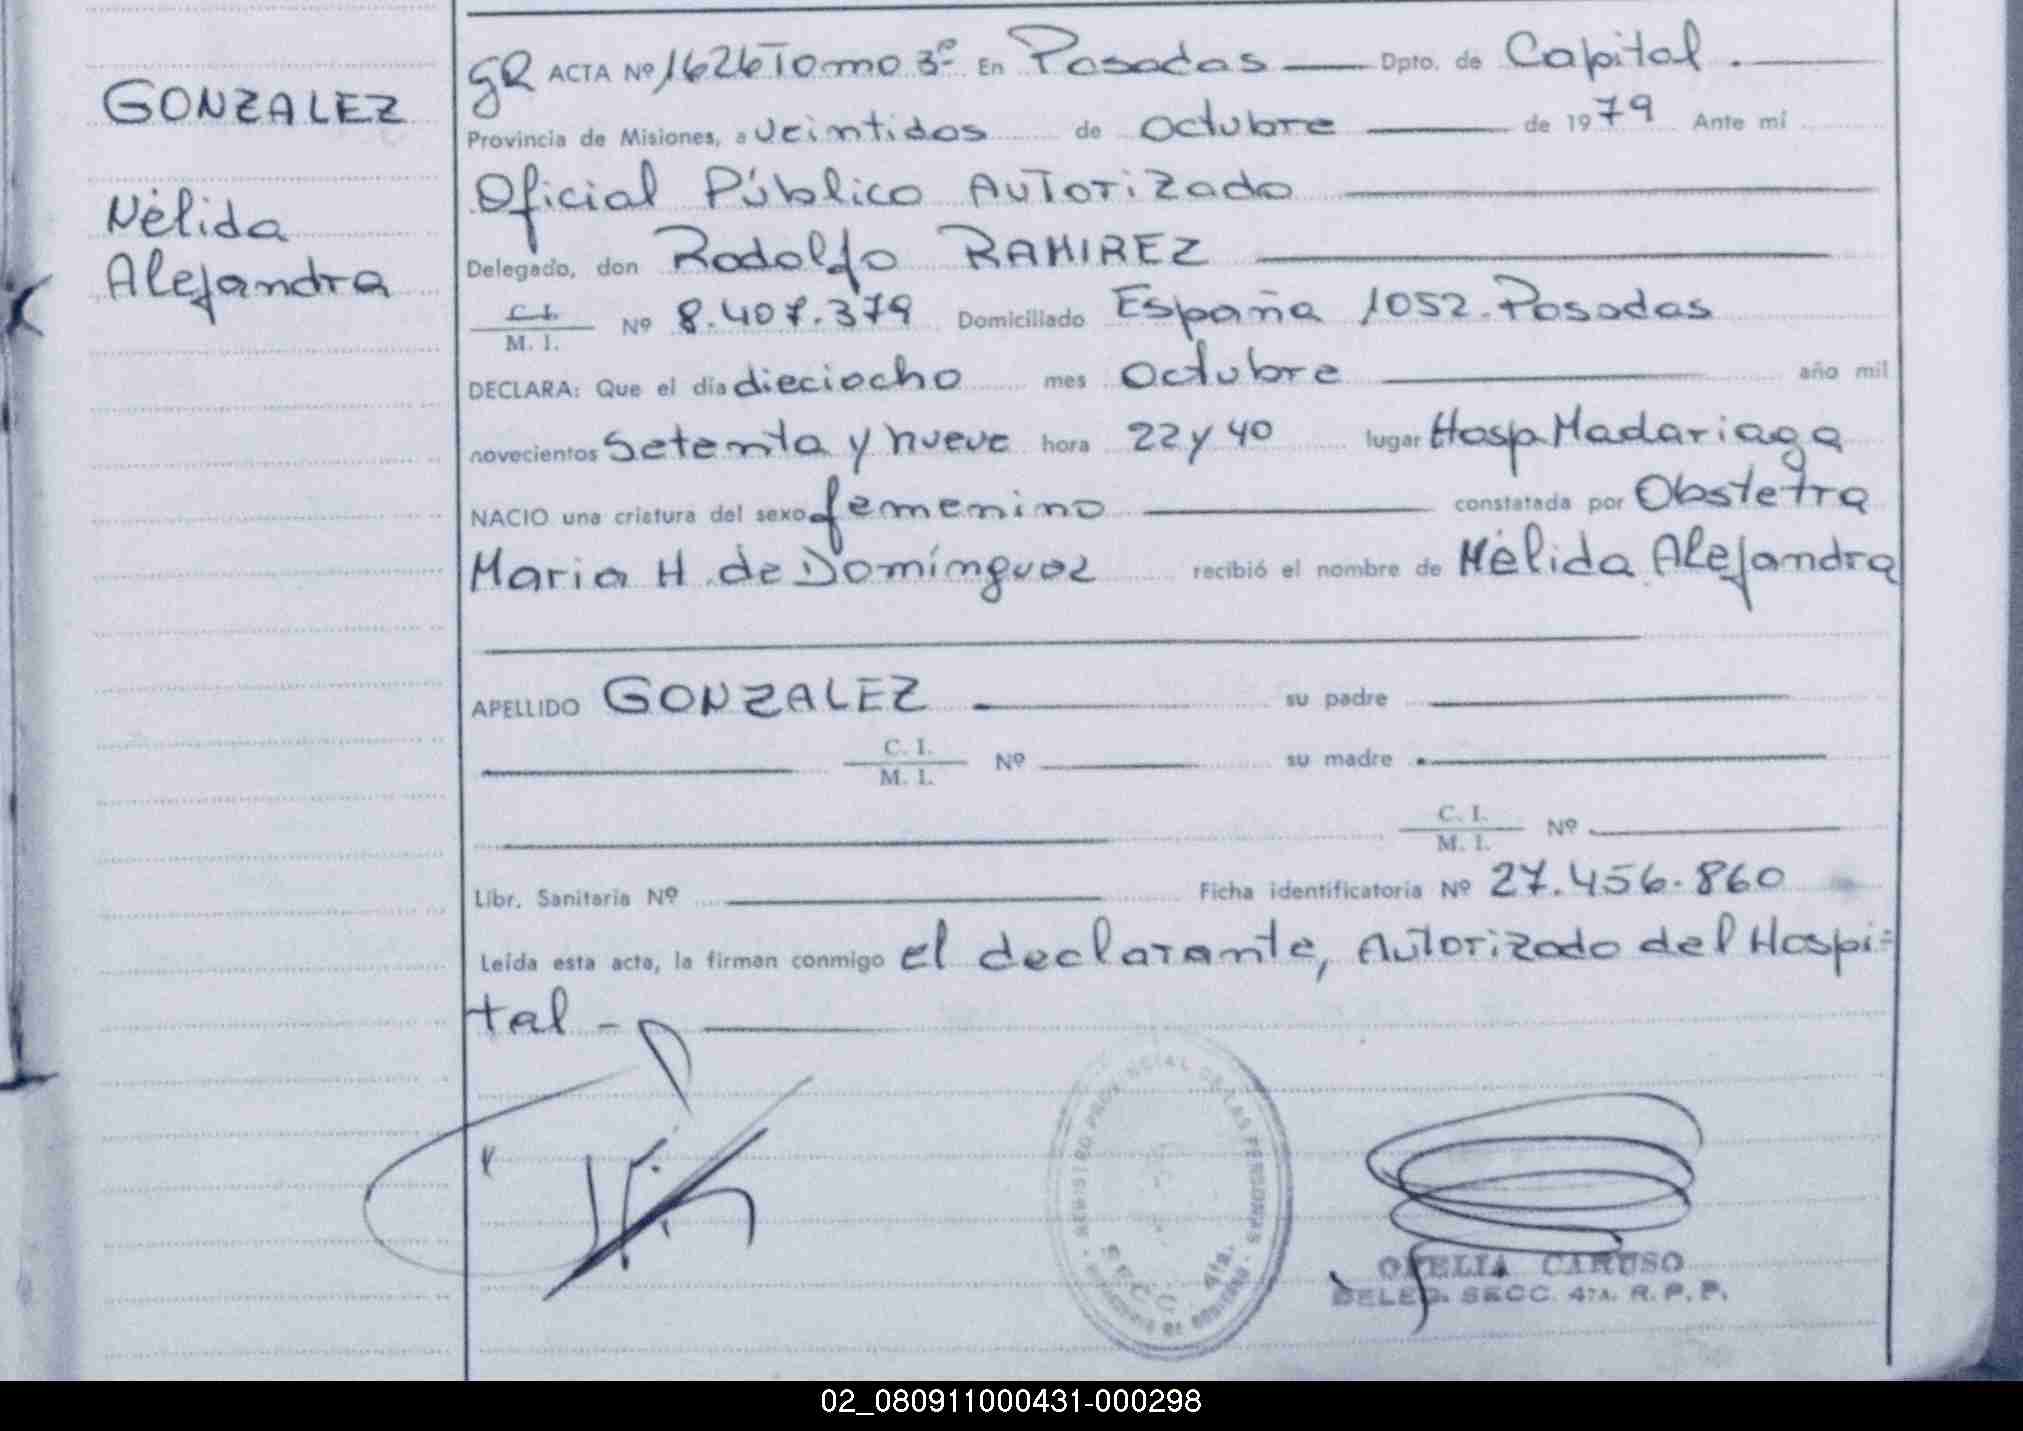 GONZALEZ
Nélida
Alejandra
GR ACTA Nº 1626 Tomo 3º En Posadas Dpto. de Capital.
Provincia de Misiones, a veintidos de octubre de 1979 Ante mi
Oficial Público Autorizado
Delegado, don Rodolfo RAMIREZ
C.I. / M. I. Nº 8.407.379 Domiciliado España 1052. Posadas
DECLARA: Que el día dieciocho mes octubre año mil
novecientos setenta y nueve hora 22 y 40 lugar Hosp Madariaga
NACIO una criatura del sexo femenino constatada por Obstetra
Maria H. de Domínguez recibió el nombre de Nélida Alejandra
APELLIDO GONZALEZ su padre
C. I. / M. I. Nº su madre
C. I. / M. I. Nº
Libr. Sanitaria Nº Ficha identificatoria Nº 27.456.860
Leída esta acta, la firman conmigo el declarante, Autorizado del Hospi=
tal -
REGISTRO PROVINCIAL DE LAS PERSONAS
SECC. 4ta.
MINISTERIO DE GOBIERNO
OFELIA CARUSO
DELEG. SECC. 4TA. R. P. P.
02_080911000431-000298